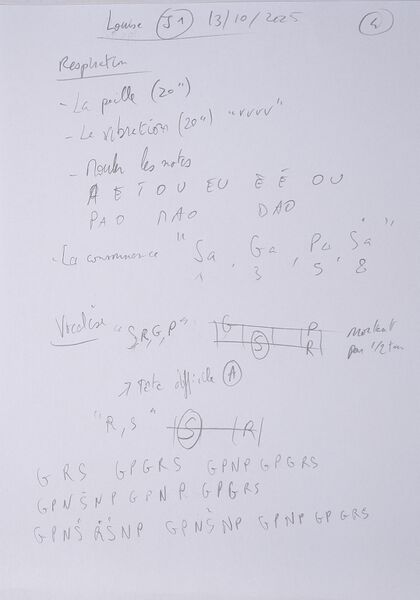 Louise J1 13/10/2025 4
Respiration
- La paille (20")
- Le vibration (20") "vvvv"
- les notes
A E I O U EU È É OU
PAO NAO DAO
- La consonance "Sa , Ga , Pa Sa"
1 3 5 8
Vocalise "S,R,G,P" G P montant
S R par 1/2 ton
→ difficile A
"R, S" S R
G R S G P G R S G P N P G P G R S
G P N Ṡ N P G P N P G P G R S
G P N Ṡ Ṙ Ṡ N P G P N Ṡ N P G P N P G P G R S